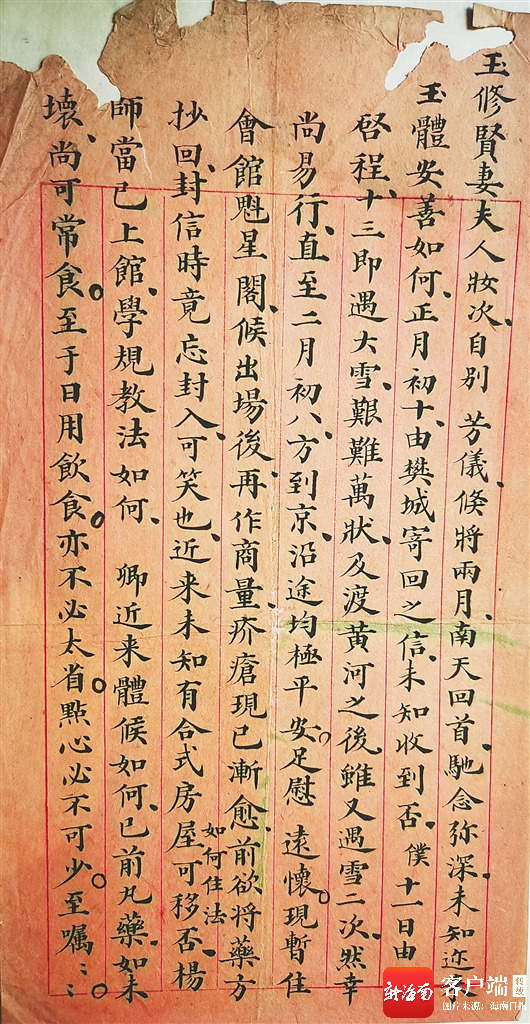 玉修賢妻夫人妝次、自別 芳儀、倏將兩月、南天回首、馳念弥深、未知近
玉體安善如何、正月初十、由樊城寄回之信、未知收到否、僕十一日由
啓程、十三即遇大雪、艱難萬狀、及渡黄河之後、雖又遇雪二次、然幸
尚易行、直至二月初八、方到京、沿途均極平安。足慰 遠懷。現暫住
會館魁星閣、候出場後、再作商量、疥瘡現已漸愈、前欲将藥方
抄回、封信時竟忘封入、可笑也、近来未知有合式房屋可移否、楊
如何住法
師當已上館、學規教法如何、 卿近来體候如何、已前丸藥、如未
壞、尚可常食。至于日用飲食。亦不必太省。點心必不可少。至嘱、、。
新海南
客户端
图片来源：海南日报